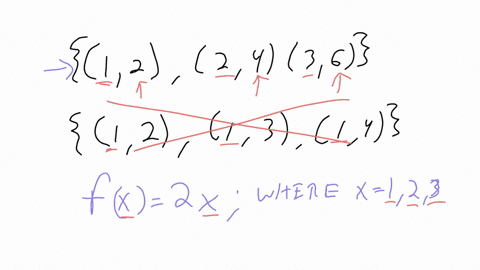 {(1,2), (2,4) (3,6)}
{(1,2), (1,3), (1,4)}
f(x)=2x; WHERE x=1,2,3